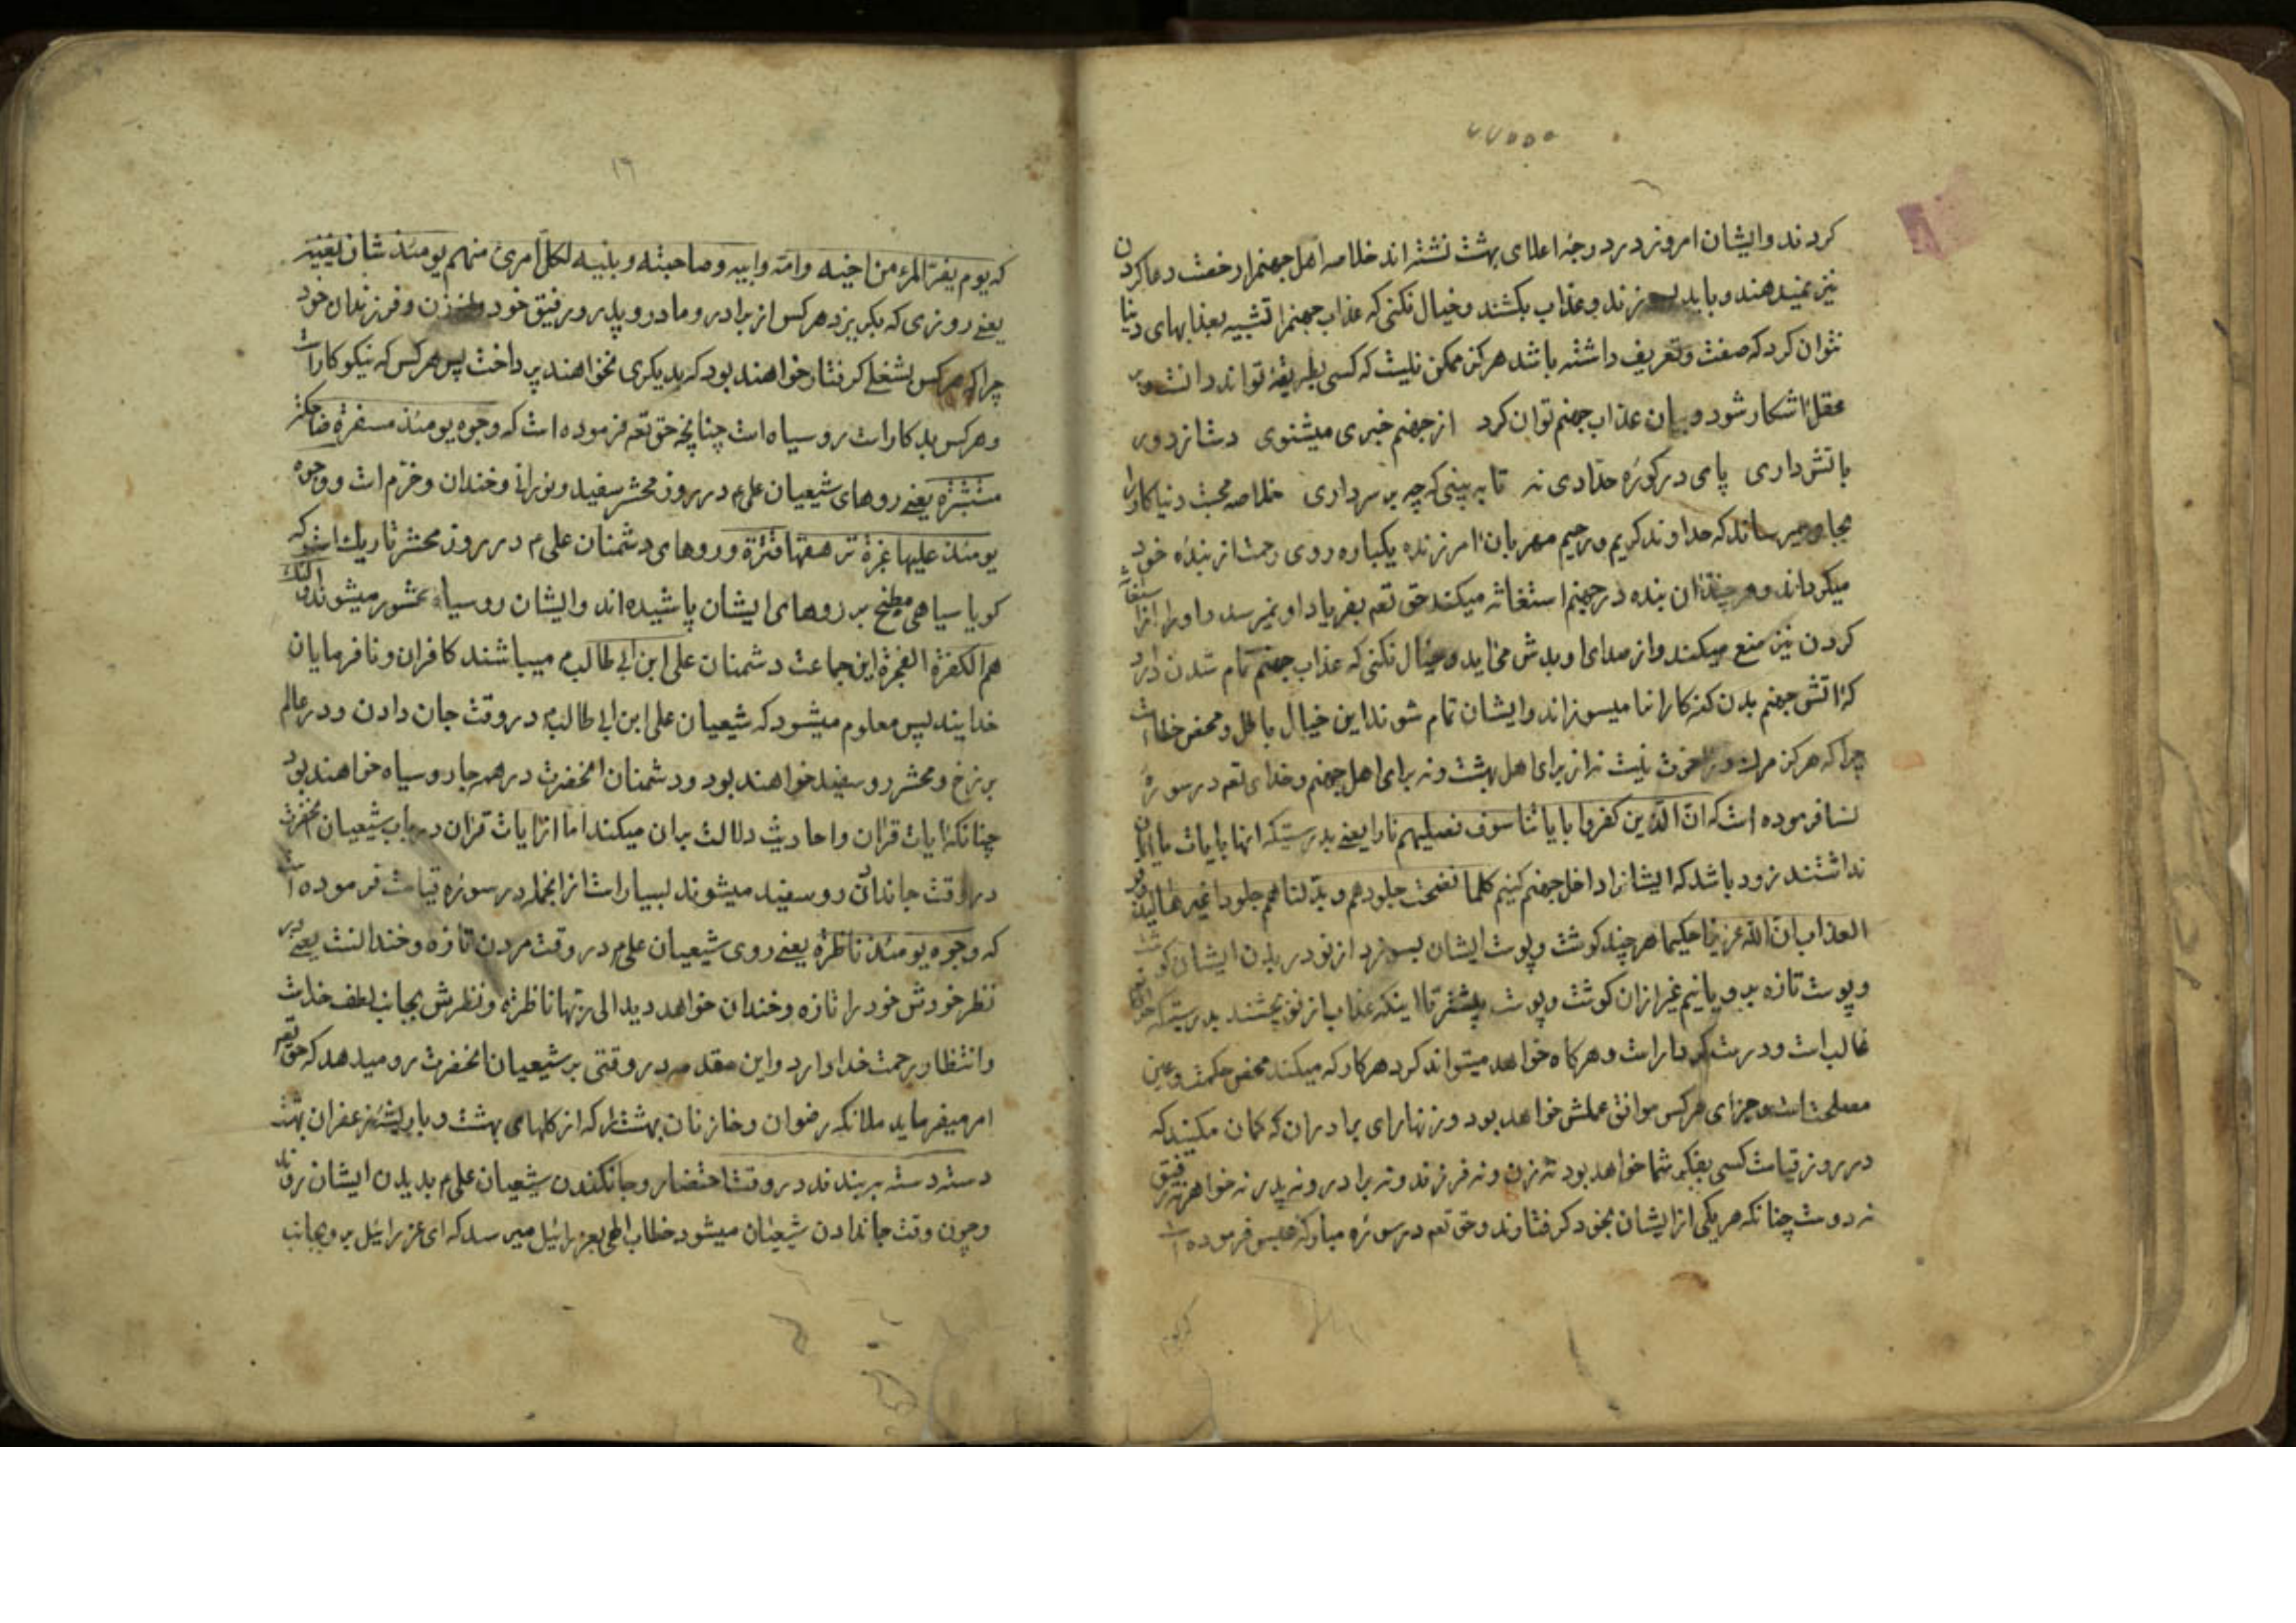 ۷۷۵۵۵
کردند وایشان امروز در درجهٔ اعلای بهشت نشسته اند خلاصه اهل جهنم را رخصت دعا کردن
نیز نمیدهند و باید بسوزند و عذاب بکشند و خیال نکنی که عذاب جهنم را تشبیه بعذابهای دنیا
توان کرد که صفت و تعریف داشته باشد هرکز ممکن نیست که کسی بطریقهٔ تواند دانست و بر
عقل اشکار شود و بیان عذاب جهنم توان کرد از جهنم خبری میشنوی دستی از دور
باتش داری پای در کورهٔ حدادی نه تا به بینی که چه بر سر داری خلاصه محبت دنیا کار را
بجای میرساند که خداوند کریم و رحیم مهربان امرزنده یکباره روی رحمت از بندهٔ خود
میکرداند و هر چند ان بنده در جهنم استغاثه میکند حق تعم بفریاد او نمیرسد و او را از استغاثه
کردن نیز منع میکند و از صدای او بدش می اید و خیال نکنی که عذاب جهنم تمام شدن دارد
که اتش جهنم بدن کنه کاران را میسوزاند و ایشان تمام شوند این خیال باطل و محض خطا است
چرا که هرکز مرك در اخرت نیست نه از برای اهل بهشت و نه برای اهل جهنم و خدای تعم در سورهٔ
نسا فرموده است که ان الذین کفروا بایاتنا سوف نصلیهم نارا یعنی بدرستیکه انها بایات ما ایمان
نداشتند زود باشد که ایشانرا داخل جهنم کنیم کلما نضجت جلودهم و بدلناهم جلودا غیرها لیذوقوا
العذاب ان الله عزیزا حکیما هر چند کوشت و پوست ایشان بسوزد از نو در بدن ایشان کوشت
و پوست تازه برویانیم غیر از ان کوشت و پوست پیشتر تا اینکه عذاب از نو بچشند بدرستیکه خدای تعم
غالب است و درست کردار است و هرکاه خواهد میتواند کرد هر کار که میکند محض حکمت و عین
مصلحت است و جزای هرکس موافق عملش خواهد بود و زنهار ای برادران که کمان مکنید که
در روز قیامت کسی بفکر شما خواهد بود نه زن و نه فرزند و نه برادر و نه پدر نه خواهر نه رفیق
نه دوست چنانکه هر یکی از ایشان بخود کرفتارند و حق تعم در سورهٔ مبارکه عبس فرموده است
۱۶
که یوم یفر المرء من اخیه وامه وابیه وصاحبته وبنیه لکل امرئ منهم یومئذ شان یغنیه
یعنی روزی که بکریزد هرکس از برادر و مادر و پدر و رفیق خود و زن و فرزندان خود
چرا که هرکس بشغلی کرفتار خواهند بود که بدیکری نخواهند پرداخت پس هرکس که نیکوکار است
و هرکس بدکار است روسیاه است چنانچه حق تعم فرموده است که وجوه یومئذ مسفرة ضاحکة
مستبشرة یعنی روهای شیعیان علی م در روز محشر سفید و نورانی و خندان و خرم است و وجوه
یومئذ علیها غبرة ترهقها قترة و روهای دشمنان علی م در روز محشر تاریك است که
کویا سیاهی مطبخ بر روهای ایشان پاشیده اند و ایشان روسیاه محشور میشوند اولئك
هم الکفرة الفجرة این جماعت دشمنان علی ابن ابی طالب م میباشند کافران و نافرمایان
خدایند پس معلوم میشود که شیعیان علی ابن ابی طالب م در وقت جان دادن و در عالم
برزخ و محشر روسفید خواهند بود و دشمنان انحضرت در همه جا روسیاه خواهند بود
چنانکه ایات قران و احادیث دلالت بر ان میکند اما از ایات قران در باب شیعیان انحضرت
در وقت جاندادن روسفید میشوند بسیار است از انجمله در سورهٔ قیامت فرموده است
که وجوه یومئذ ناظرة یعنی روی شیعیان علی م در وقت مردن تازه و خندانست یعنی در
نظر خودش خود را تازه و خندان خواهد دید الی ربها ناظرة و نظرش بجانب لطف خداست
و انتظار رحمت خدا دارد و این مقدمه در وقتی بر شیعیان انحضرت رو میدهد که حق تعم
امر میفرماید ملائکه رضوان و خازنان بهشت را که از کلهای بهشت و با ریشهٔ زعفران بهشت
دسته دسته بربندند در وقت احتضار و جانکندن شیعیان علی م بدیدن ایشان روند
و چون وقت جاندادن شیعیان میشود خطاب الهی بعزرائیل میرسد که ای عزرائیل برو بجانب